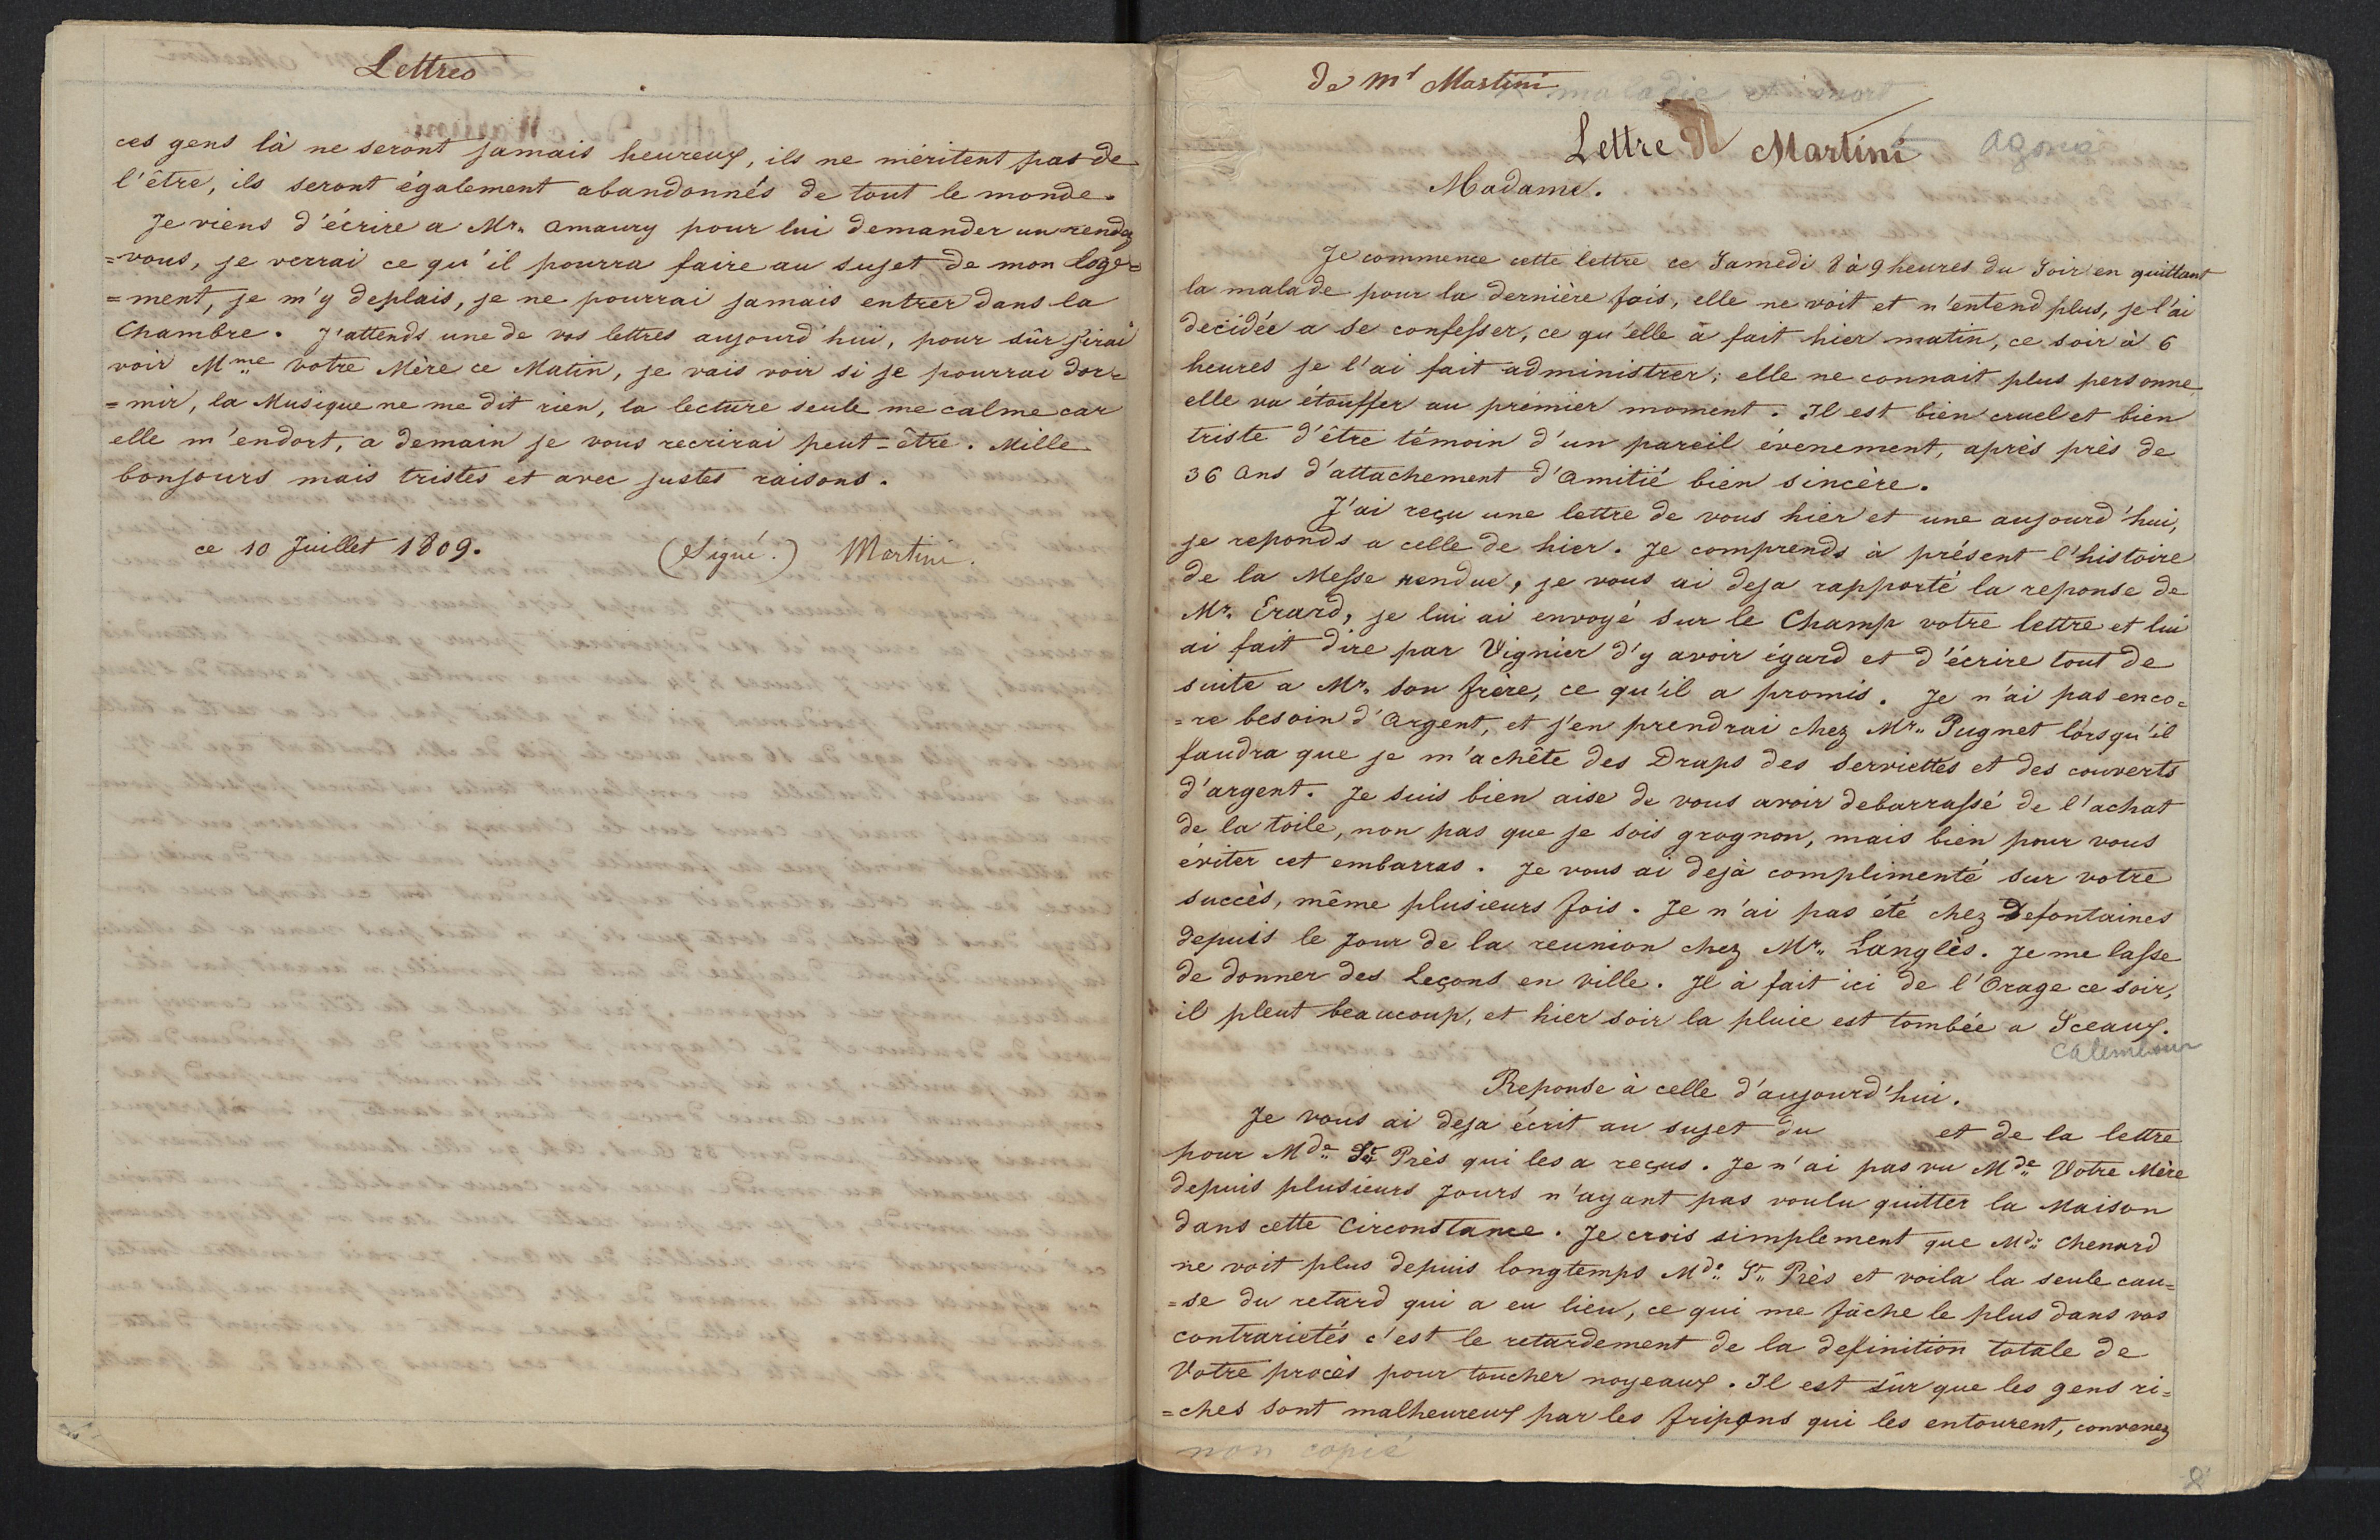 Lettres
ces gens là ne seront jamais heureux, ils ne méritent pas de
l'être, ils seront également abandonnés de tout le monde.
Je viens d'écrire a Mr. Amaury pour lui demander un rendez
=vous, je verrai ce qu'il pourra faire au sujet de mon loge=
=ment, je m'y deplais, je ne pourrai jamais entrer dans la
Chambre. J'attends une de vos lettres aujourd'hui, pour sûr j'irai
voir Mme votre Mère ce Matin, je vais voir si je pourrai dor=
=mir, la Musique ne me dit rien, la lecture seule me calme car
elle m'endort, a demain je vous recrirai peut-être. Mille
bonjours mais tristes et avec justes raisons.
ce 10 Juillet 1809. (Signé.) Martini.
de Mr Martini
maladie et mort
Lettre de Martini agonie
Madame.
Je commence cette lettre ce Samedi 8 à 9 heures du Soir en quittant
la malade pour la dernière fois, elle ne voit et n'entend plus, je l'ai
decidée a se confesser, ce qu'elle à fait hier matin, ce soir à 6
heures je l'ai fait administrer; elle ne connait plus personne
elle va étouffer au premier moment. Il est bien cruel et bien
triste d'être témoin d'un pareil évenement, après près de
36 Ans d'attachement d'Amitié bien sincère.
J'ai reçu une lettre de vous hier et une aujourd'hui,
je reponds a celle de hier. Je comprends à présent l'histoire
de la Messe rendue, je vous ai deja rapporté la reponse de
Mr. Erard, je lui ai envoyé sur le Champ votre lettre et lui
ai fait dire par Vignier d'y avoir égard et d'écrire tout de
suite a Mr. son frère, ce qu'il a promis. Je n'ai pas enco=
=re besoin d'Argent, et j'en prendrai chez Mr. Pugnet lorsqu'il
faudra que je m'achête des Draps des Serviettes et des couverts
d'argent. Je suis bien aise de vous avoir debarrassé de l'achat
de la toile, non pas que je sois grognon, mais bien pour vous
éviter cet embarras. Je vous ai dejà complimenté sur votre
succès, même plusieurs fois. Je n'ai pas été chez Defontaines
depuis le Jour de la reunion chez Mr. Langlès. Je me lasse
de donner des Leçons en ville. Il à fait ici de l'Orage ce soir,
il pleut beaucoup, et hier soir la pluie est tombée a Sceaux.
Calembour
Reponse à celle d'aujourd'hui.
Je vous ai deja écrit au sujet du et de la lettre
pour Mde St. Près qui les a reçus. Je n'ai pas vu Mde Votre Mère
depuis plusieurs Jours n'ayant pas voulu quitter la Maison
dans cette Circonstance. Je crois simplement que Md. Chenard
ne voit plus depuis longtemps Mde St. Près et voila la seule cau=
=se du retard qui a eu lieu, ce qui me fâche le plus dans vos
contrarietés c'est le retardement de la definition totale de
Votre procès pour toucher noyeaux. Il est sûr que les gens ri=
=ches sont malheureux par les fripons qui les entourent, convenez
non copié